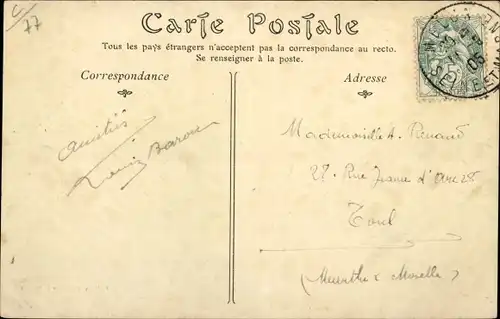 77
Carte Postale
Tous les pays étrangers n'acceptent pas la correspondance au recto.
Se renseigner à la poste.
Correspondance
Adresse
amitiés
Louis Baron
Mademoiselle A. Renard
27 Rue Jeanne d'Arc 28
Toul
(Meurthe & Moselle)